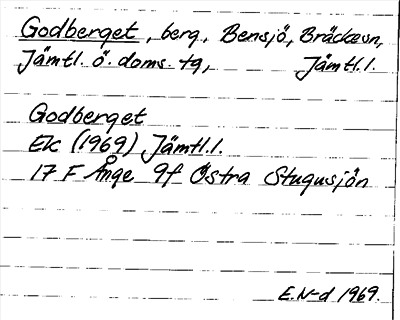 Godberget, berg, Bensjö, Bräckesn,
Jämtl. ö. doms. tg, Jämtl.l.
Godberget
EK (1969) Jämtl.l.
17 F Ånge 9f Östra Stugusjön
E.N-d 1969.